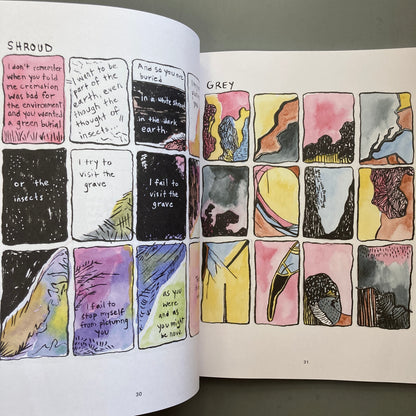 SHROUD
I don't remember
when you told
me cremation
was bad for
the environment
and you wanted
a green burial
I want to be
part of the
earth, even
though the
thought of
insects...
And so you
buried
in a white shroud
in the dark
earth.
or the
insects
I try to
visit the
grave
I fail to
visit the
grave
I fail to
stop myself
from picturing
you
as you
were and as
you might
be now.
30
GREY
31